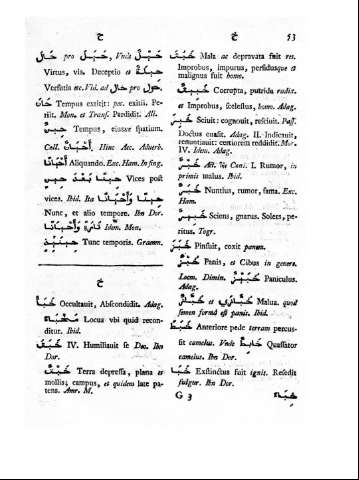 خ خ 53
pro حَبَل, Unde
Virtus, vis. Deceptio et
Versutia &c. Vid. ad حال pro حول.
حَانَ Tempus extitit: pec. exitii. Pe-
riit. Mon. et Transf. Perdidit. Alii.
حِينٌ Tempus, eiusve spatium.
Coll. أَحْيَانٌ Hinc Acc. Adverb.
أَحْيَانًا Aliquando. Exc. Ham. In sing.
حِينًا بَعْدَ حِينٍ Vices post
vices. Ibid. Ita حِينًا وَأَحْيَانًا
Nunc, et alio tempore. Ibn Dor.
Idem. Mon.
حِينَئِذٍ Tunc temporis. Gramm.
خ
خَبَأَ Occultauit, Abscondidit. Adag.
Locus vbi quid recon-
ditur. Ibid.
IV. Humiliauit se Deo. Ibn
Dor.
خَبْتٌ Terra depressa, plana et
mollis; campus, et quidem late pa-
tens. Amr. M.
خَبُثَ Mala ac depravata fuit res.
Improbus, impurus, perfidusque et
malignus fuit homo.
خَبِيثٌ Corrupta, putrida radix.
et Improbus, scelestus, homo. Adag.
خَبَرَ Sciuit: cognouit, resciuit. Pass.
Doctus euasit. Adag. II. Indicauit,
renuntiauit: certiorem reddidit. Mor.
IV. Idem. Adag.
خُبْرٌ Act. &c Coni. I. Rumor, in
primis malus. Ibid.
خَبَرٌ Nuntius, rumor, fama. Exc.
Ham.
خَبِيرٌ Sciens, gnarus. Solers, pe-
ritus. Togr.
خَبَزَ Pinsuit, coxit panem.
خُبْزٌ Panis, et Cibus in genere.
Locm. Dimin. خُبَيْزٌ Paniculus.
Adag.
et Malua. quod
semen formâ est panis. Ibid.
خَبَطَ Anteriore pede terram percus-
sit camelus. Unde خَابِطٌ Quassator
camelus. Ibn Dor.
خَبَا Exstinctus fuit ignis. Resedit
fulgur. Ibn Dor.
G 3